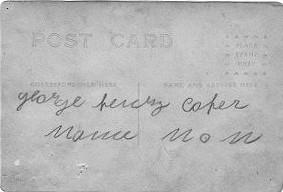 POST CARD
PLACE
STAMP
HERE
CORRESPONDENCE HERE
NAME AND ADDRESS HERE
george henry coper
name non